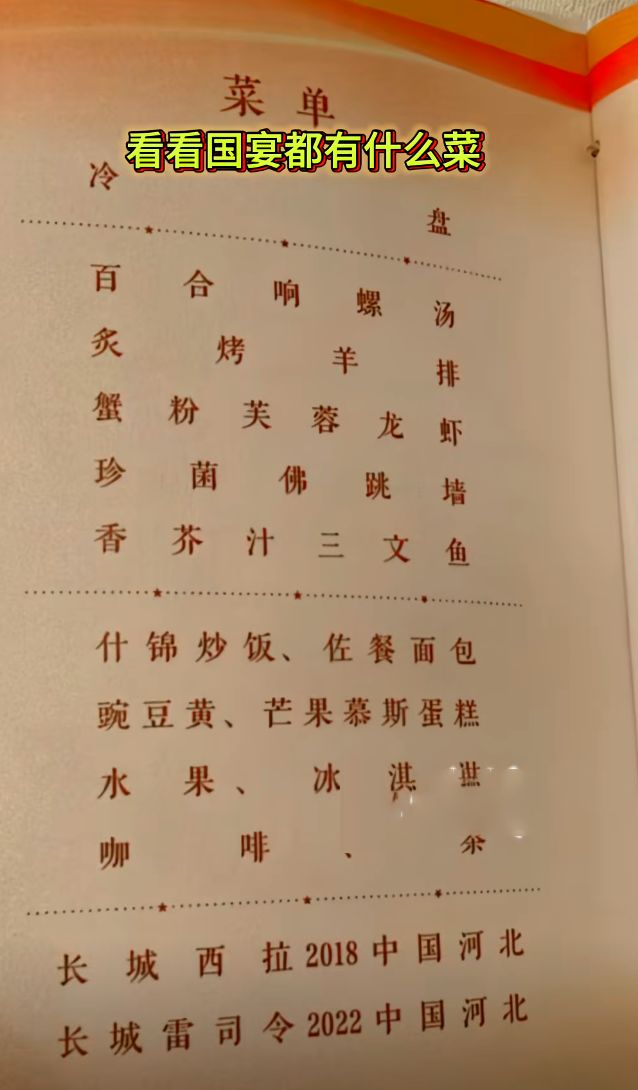 菜单
看看国宴都有什么菜
冷盘
百合响螺汤
炙烤羊排
蟹粉芙蓉龙虾
珍菌佛跳墙
香芥汁三文鱼
什锦炒饭、佐餐面包
豌豆黄、芒果慕斯蛋糕
水果、冰淇
咖啡、
长城西拉2018中国河北
长城雷司令2022中国河北